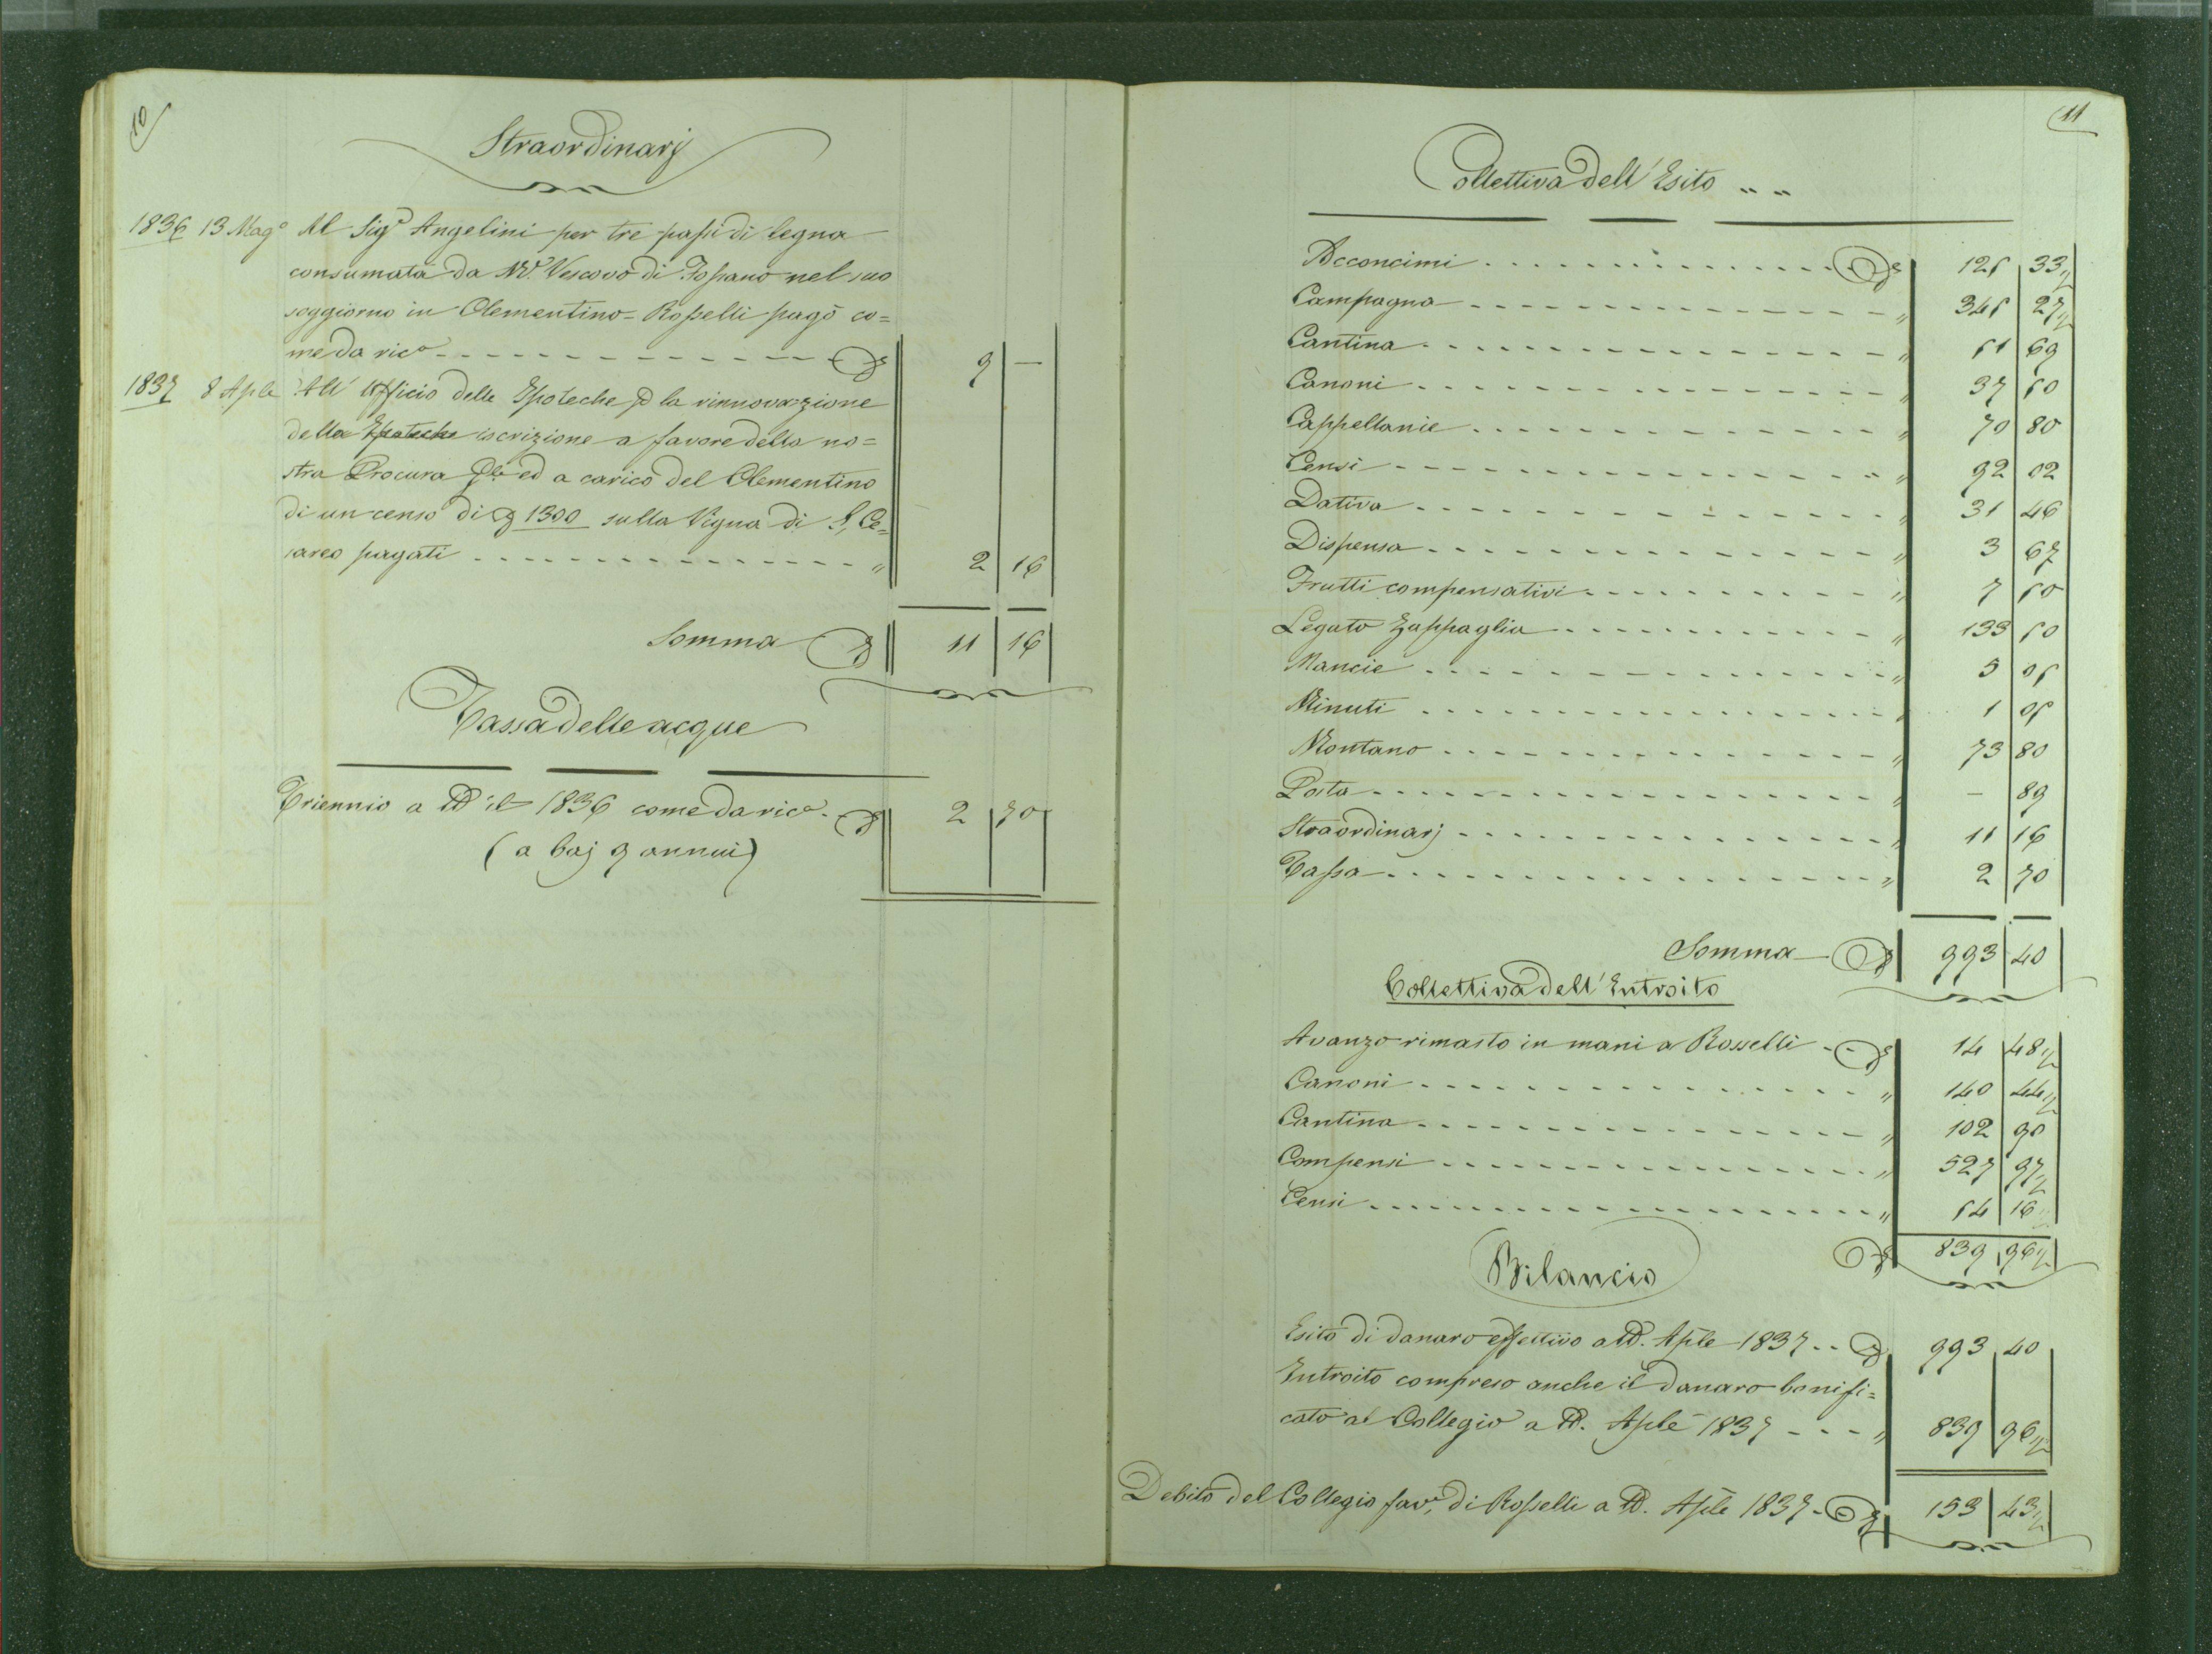 10
Straordinarj
1836 13 Mag° Al Sigr Angelini per tre passi di legna
consumata da Mr. Vescovo di Fossano nel suo
soggiorno in Clementino = Rosselli pagò co=
me da rica - - - 9 —
1837 8 Aple All' Ufficio delle Ipoteche p la rinnovazione
della Ipoteche iscrizione a favore della no=
stra Procura Gle ed a carico del Clementino
di un censo di 1300 sulla Vigna di S. Ce=
sareo pagati - - - " 2 16
Somma 11 16
Tassa delle acque
Triennio a tt° il 1836 come da rica - 2 70
(a baj 9 annui)
11
Collettiva dell' Esito " "
Acconcimi . . . 125 33½
Campagna - - - " 345 27½
Cantina - - - " 51 69
Canoni - - - " 37 50
Cappellanie - - - " 70 80
Censi - - - " 92 02
Dativa - - - " 31 46
Dispensa - - - " 3 67
Frutti compensativi - - - " 7 50
Legato Zappaglia - - - " 133 50
Mancie - - - " 5 05
Minuti - - - " 1 05
Montano - - - " 73 80
Posta - - - " — 89
Straordinarj - - - " 11 16
Tassa - - - " 2 70
Somma 993 40
Collettiva dell' Entroito
Avanzo rimasto in mani a Rosselli - - 14 48½
Canoni - - - " 140 44½
Cantina - - - " 102 90
Compensi - - - " 527 97½
Censi - - - " 54 16
839 96½
Bilancio
Esito di danaro effettivo a tt°. Aple 1837 - - 993 40
Entroito compreso anche il danaro bonifi=
cato al Collegio a tt°. Aple 1837 - - - " 839 96½
Debito del Collegio favr, di Rosselli a tt°. Aple 1837 - 153 43½